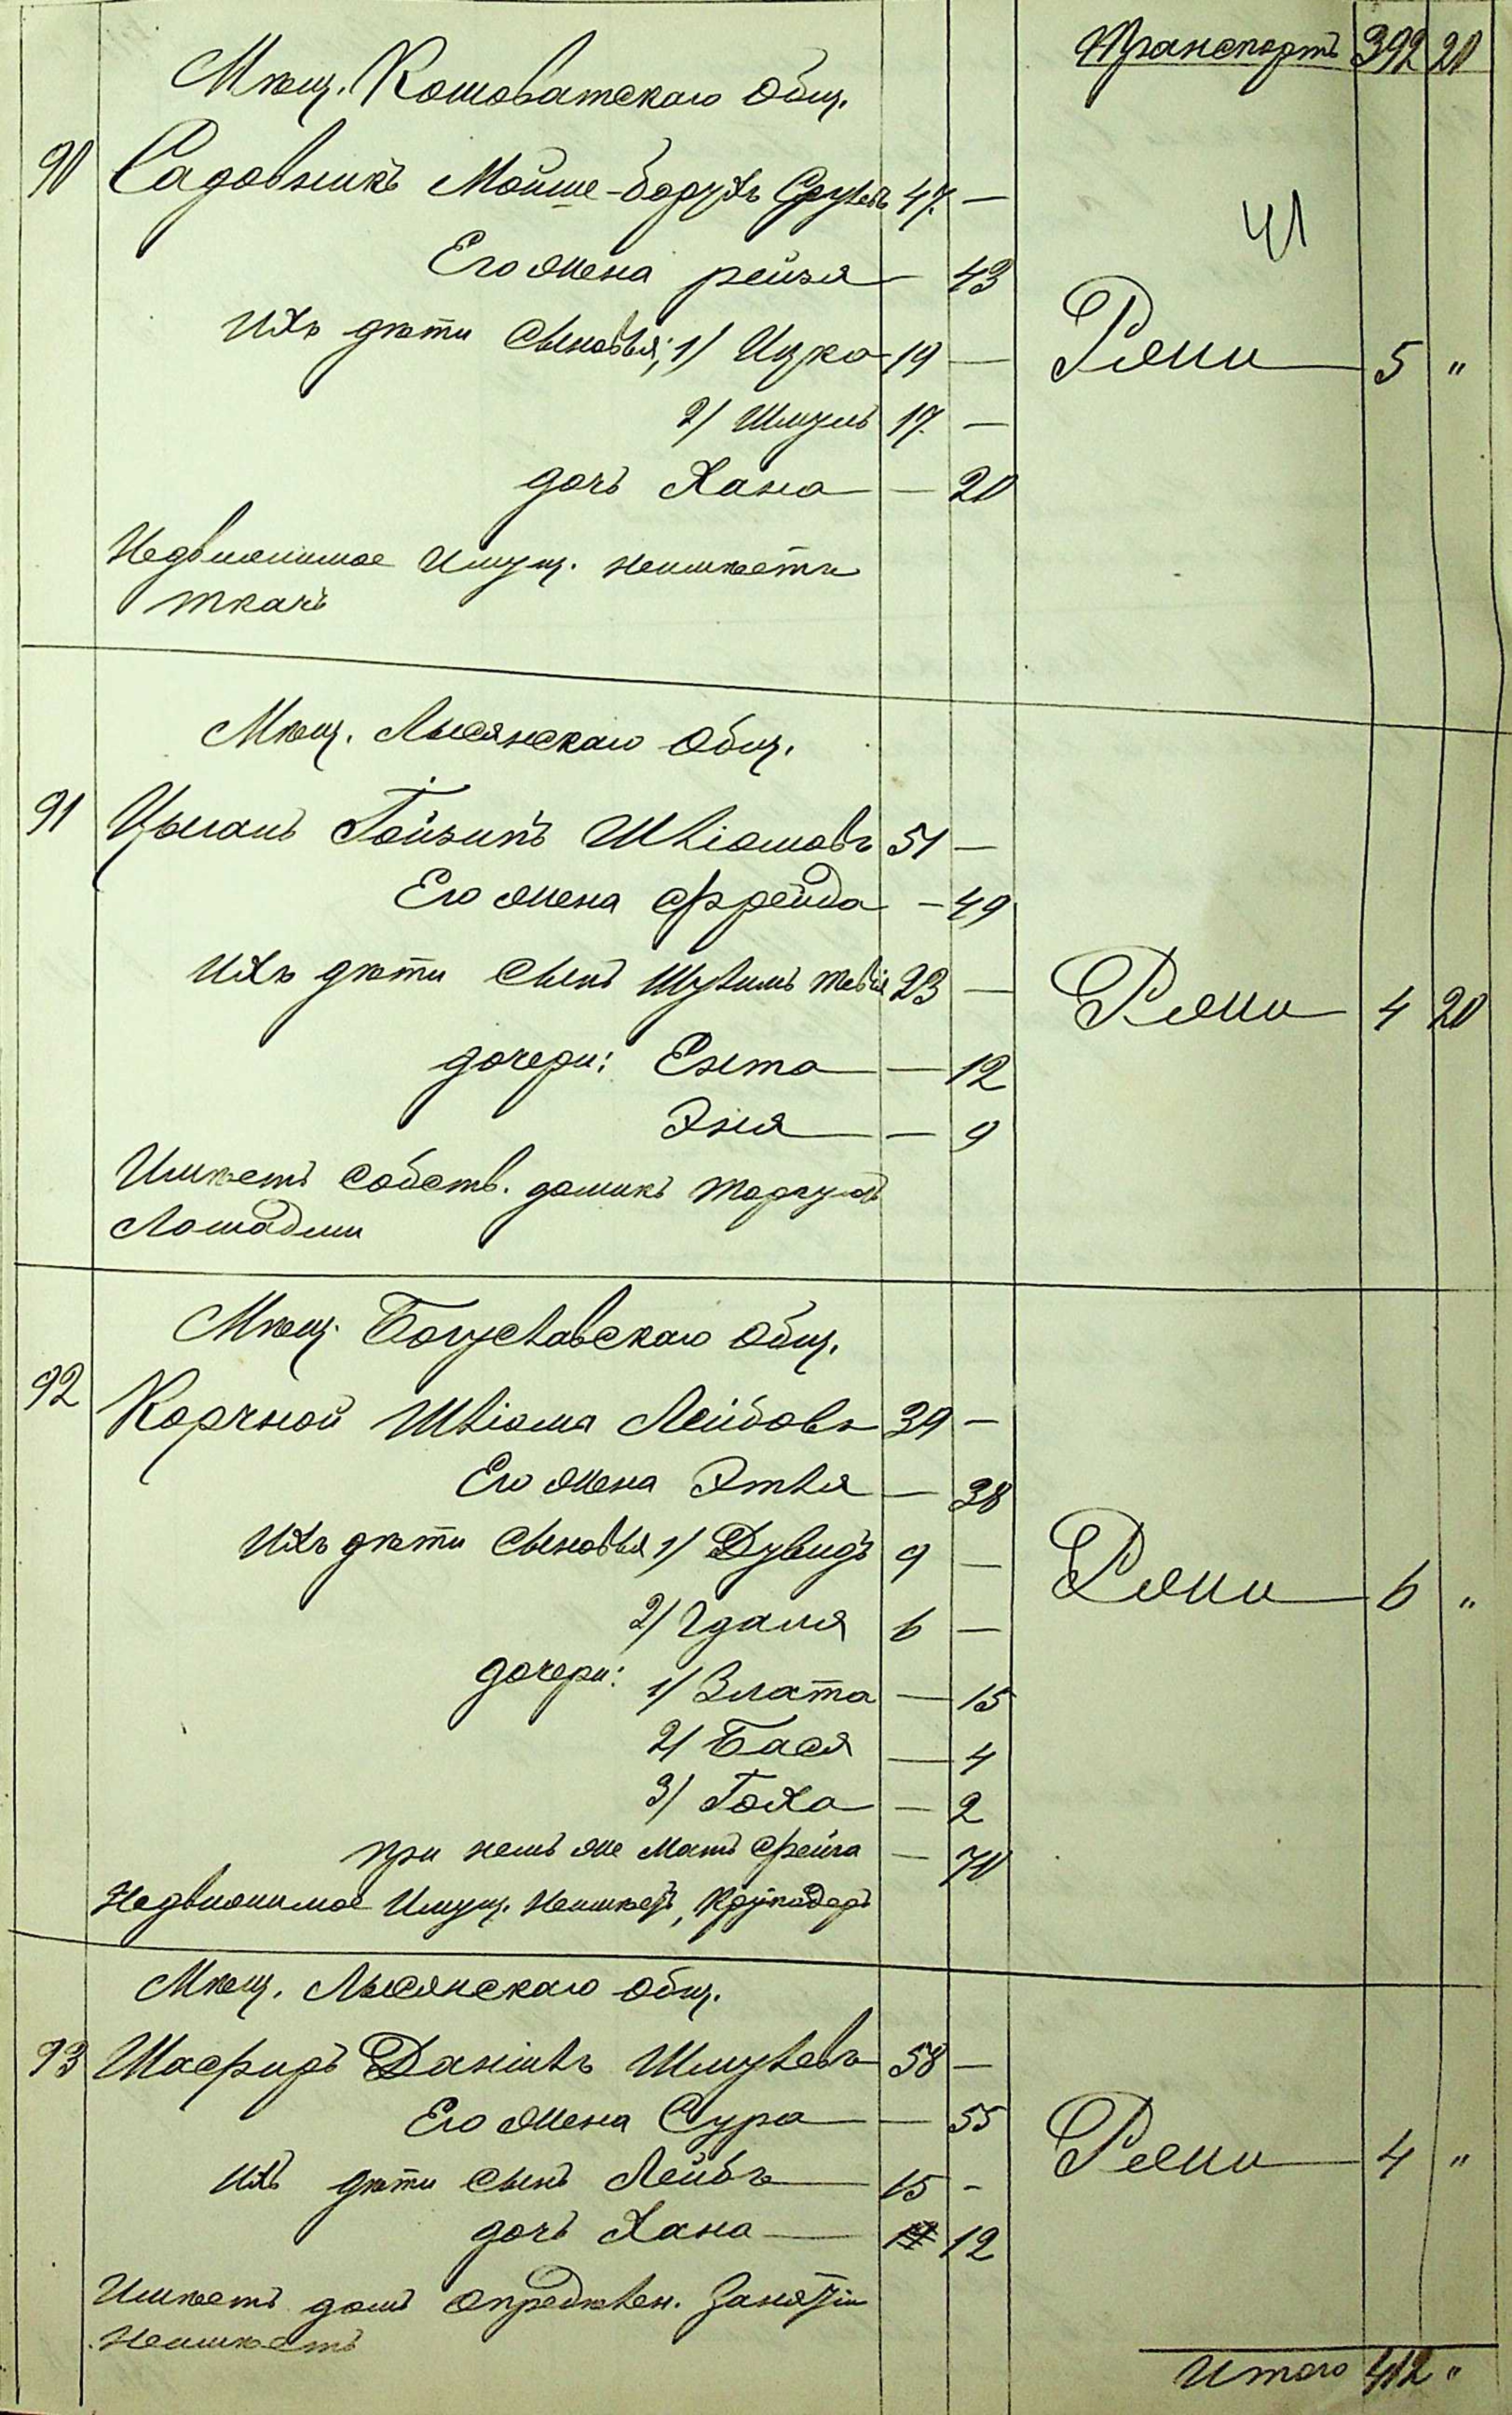 Транспортъ 392 20
Мѣщ. Кошоватскаго Общ.
90 Садовникъ Мойше-Борухъ Срулевъ 47 —
41
Его жена Рейзя — 43
Ихъ дѣти сыновья; 1/ Ицко 19 —
Ряжи 5 "
2/ Шмуль 17 —
дочь Хана — 20
Недвижимое Имущ. неимѣетъ
ткачъ
Мѣщ. Лысянскаго Общ.
91 Цыганъ Гойзипъ Шліомовъ 51 —
Его жена Фрейда — 49
Ихъ дѣти сынъ Шулимъ Тевія 23 —
Ряжи 4 20
дочери: Ента — 12
Эня — 9
Имѣетъ собств. домикъ торгуетъ
Лошадьми
Мѣщ. Богуславскаго Общ.
92 Корчной Шліома Лейбовъ 39 —
Его жена Этля — 38
Ихъ дѣти сыновья 1/ Дувидъ 9 —
Ряжи 6 "
2/ Гдаля 6 —
дочери: 1/ Злата — 15
2/ Бася — 4
3/ Гоха — 2
при немъ же мать Фейга — 70
Недвижимое Имущ. Неимѣетъ, Крупадеръ
Мѣщ. Лысянскаго общ.
93 Шафиръ Даніилъ Шмулевъ 58 —
Его жена Сура — 55
Ряжи 4 "
Ихъ дѣти сынъ Лейбъ 15 —
дочь Хана — 12
Имѣетъ домъ опредѣлен. Занятій
Неимѣетъ
Итого 412 "